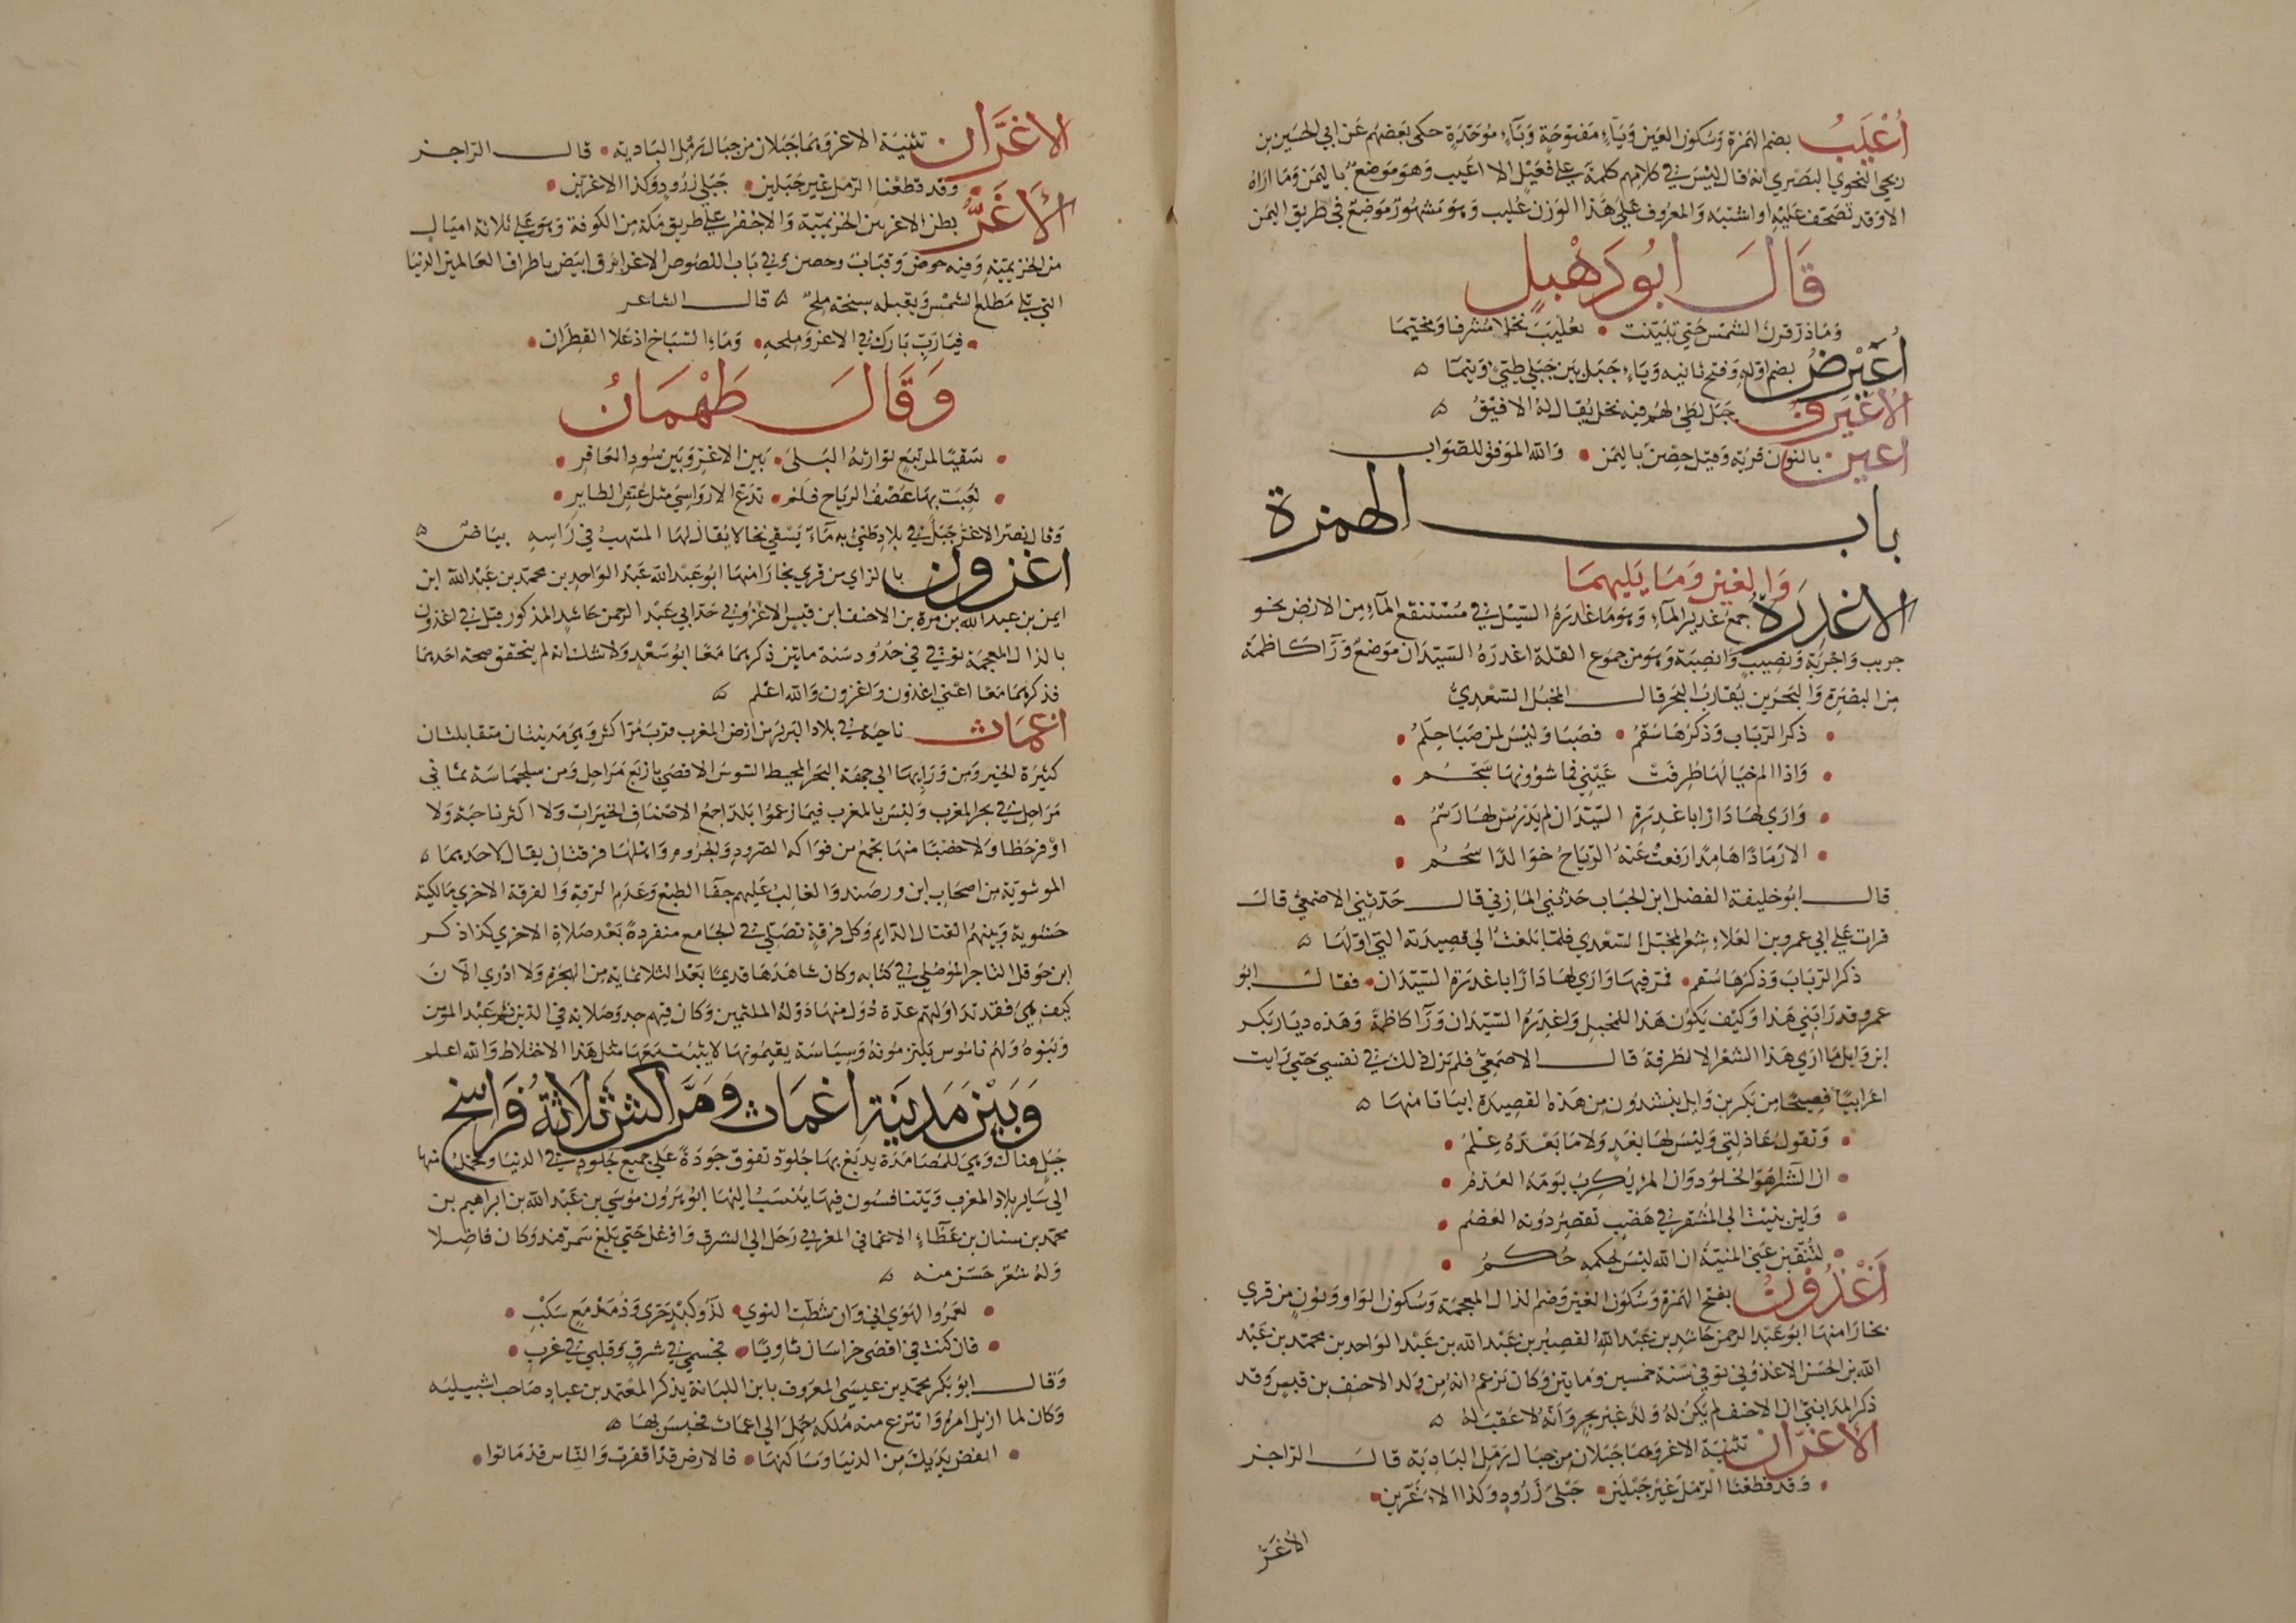 أُعْيَبُ بضم الهمزة وسكون العين وياء مفتوحة وباء موحدة حكى بعضهم عن ابي الحسين بن
يحيى النحوي البصري انه قال ليس في كلامهم كلمة على فعيل الا اعيب وهو موضع باليمن وما اراه
الا وقد تصحف عليه او اشتبه والمعروف على هذا الوزن عُليب وهو مشهور موضع في طريق اليمن
قَالَ ابُو دَهْبلٍ
وما ذر قرن الشمس حتي تبينت • بعُليَبَ نخلا مشرفا ومخيما
أُعَيْرضُ بضم اوله وفتح ثانيه وياء جبل بين جبلي طيئ وتيما ۵
الأُعَيْرِفُ جبل لطيئ لهم فيه نخل يقال له الافيق ۵
اعين بالنون قرية وقيل حصن باليمن • والله الموفق للصواب
باب الهمزة
وَالغين وَمَا يَليهمَا
الاغدِرَة جمع غدير الماء وهو ما غادره السيل في مستنقع الماء من الارض نحو
جريب واجربة ونصيب وانصبة وهو من جموع القلة اغدرة السيدان موضع ورا كاظمة
من البصرة والبحرين يقارب البحر قال المخبل السعدي
• ذكر الرباب وذكرها سقم • فصبا وليس لمن صبا حلم •
• واذا الم خيالها طرفت عيني فما شؤونها سجم •
• واري لها دارا باغدرة السيدان لم يدرس لها رسم •
• الا رمادا هامدا رفعت عنه الرياح خوالد سحم •
قال ابو خليفة الفضل ابن الحباب حدثني المازني قال حدثني الاصمعي قال
قرات علي ابي عمرو بن العلاء شعر المخبل السعدي فلما بلغت الي قصيدته التي اولها ۵
ذكر الرباب وذكرها سقم • فمر فيها واري لها دارا باغدرة السيدان • فقال ابو
عمرو قد رابني هذا وكيف يكون هذا للمخبل ولاغدرة السيدان ورا كاظمة وهذه ديار بكر
ابن وايل ما اري هذا الشعر الا لطرفة قال الاصمعي فلم تزل ذلك في نفسي حتي رايت
اعرابيا فصيحا من بكر بن وايل ينشد من هذه القصيدة ابياتا منها ۵
• وتقول عاذلتي وليس لها بغد ولا ما بعده علم •
• ان الثراء هو الخلود وان المرء يكرب يومه العدم •
• ولين بنيت الي المشقر في هضب تقصر دونه العصم •
• لتنقبن عني المنية ان الله ليس لحكمه حكم •
أَغْذُونُ بفتح الهمزة وسكون الغين وضم الذال المعجمة وسكون الواو ونون من قري
بخارا منها ابو عبد الرحمن حاشد بن عبد الله القصير بن عبد الله بن عبد الواحد بن محمد بن عبد
الله بن الحسن الاغذوني توفي سنة خمسين وماتين وكان تزعم انه من ولد الاحنف بن قيس وقد
ذكر المدايني ان الاحنف لم يكن له ولد غير بحر وانه لا عقب له ۵
الأغرّان تثنية الاغر وهما جبلان من جبال رمل البادية قال الراجز
• وقد قطعنا الرمل غير جبلين • جبلي زرود وكذا الاغرين •
الأَغَرُّ
الاغَرَّان تثنية الاغر وهما جبلان من جبال رمل البادية • قال الراجز
• وقد قطعنا الرمل غير جبلين • جبلي زرود وكذا الاغرين •
الأَغَرُّ بطن الاغر بين الخزيمية والاجفر علي طريق مكة من الكوفة وهو علي ثلاثة اميال
من الخزيمية وفيه حوض وقباب وحصن وفي باب اللصوص الاغر ابرق ابيض باطراف العالمين الدنيا
التي تلي مطلع الشمس ويقبله سبخة ملح ۵ قال الشاعر
• فيا رب بارك في الاغر وملحه • وماء السباخ اذ علا القطران •
وَقَالَ طَهْمَانُ
• سقيا لمرتبع توارثه البلي • بين الاغر وبين سود العاقر •
• لعبت بها عصف الرياح فلم • تدع الا رواسي مثل عش الطاير •
وقال نصر الاغر جبل في بلاد طيئ به ماء يسقي نخا لا يقال لها المنتهب في راسه بياض ۵
اغزون بالزاي من قري بخارا منها ابو عبد الله عبد الواحد بن محمد بن عبد الله ابن
ايمن بن عبد الله بن مرة بن الاحنف ابن قيس الاغزوني جد ابي عبد الرحمن حاشد المذكور قبل في اغذون
بالذال المعجمة توفي في حدود سنة ماتين ذكرهما معا ابو سعد ولا شك انه لم يتحقق صحة احدهما
فذكرهما معا اعني اغذون واغزون والله اعلم ۵
اغمات ناحية في بلاد البربر من ارض المغرب قرب مراكش وهي مدينتان متقابلتان
كثيرة الخير ومن ورايها الي جهة البحر المحيط السوس الاقصي باربع مراحل ومن سجلماسة ثماني
مراحل في بحر المغرب وليس بالمغرب فيما زعموا بلد اجمع لاصناف الخيرات ولا اكثر ناحية ولا
اوفر حظا ولا خصبا منها تجمع من فواكه الصرود والجروم واهلها فرقتان يقال لاحدهما ۵
الموسوية من اصحاب ابن ورصند والغالب عليهم جفا الطبع وعدم الرقة والفرقة الاخري مالكية
حشوية وبينهم القتال الدايم وكل فرقة تصلي في الجامع منفردة بعد صلاة الاخري كذا ذكر
ابن حوقل التاجر الموصلي في كتابه وكان شاهدها قديما بعد الثلاثماية من الهجرة ولا ادري الان
كيف هي فقد تداولتهم عدة دول منها دولة الملثمين وكان فيهم جد وصلابة في الدين ثم عبد المومن
وبنوه ولهم ناموس يلتزمونه وسياسة يقيمونها لا يثبت معها مثل هذا الاختلاط والله اعلم
وَبَيْن مَدينَةِ اغمَات وَمَرَّاكش ثلَاثَةُ فَرَاسخ
جبل هناك وهي للمصامدة يدبغ بها جلود تفوق جودة علي جميع جلود في الدنيا وتحمل منها
الي ساير بلاد المغرب ويتنافسون فيها ينسب اليها ابو هرون موسي بن عبد الله بن ابراهيم بن
محمد بن سنان بن عطاء الاغماتي المغربي رحل الي الشرق واوغل حتي بلغ سمرقند وكان فاضلا
وله شعر حسن منه ۵
• لعمر الهوي اني وان شطت النوي • لذو كبد حري وذو مدمع سكب •
• فان كنت في اقصي خراسان ثاويا • فجسمي في شرق وقلبي في غرب •
وقال ابو بكر محمد بن عيسي المعروف بابن اللبانة يذكر المعتمد بن عباد صاحب اشبيلية
وكان لما ازيل امره وانتزع منه ملكه حمل الي اغمات فحبس بها ۵
• انفض يديك من الدنيا وساكنها • فالارض قد اقفرت والناس قد ماتوا •